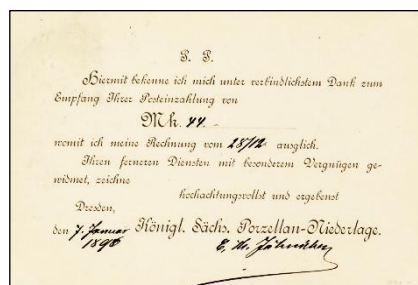 P. P.
Hiermit bekenne ich mich unter verbindlichstem Dank zum
Empfang Ihrer Posteinzahlung von
Mk. 44.-
womit ich meine Rechnung vom 28/12 ausglich.
Ihren ferneren Diensten mit besonderem Vergnügen ge-
widmet, zeichne
hochachtungsvollst und ergebenst
Dresden,
den 7. Januar Königl. Sächs. Porzellan-Niederlage.